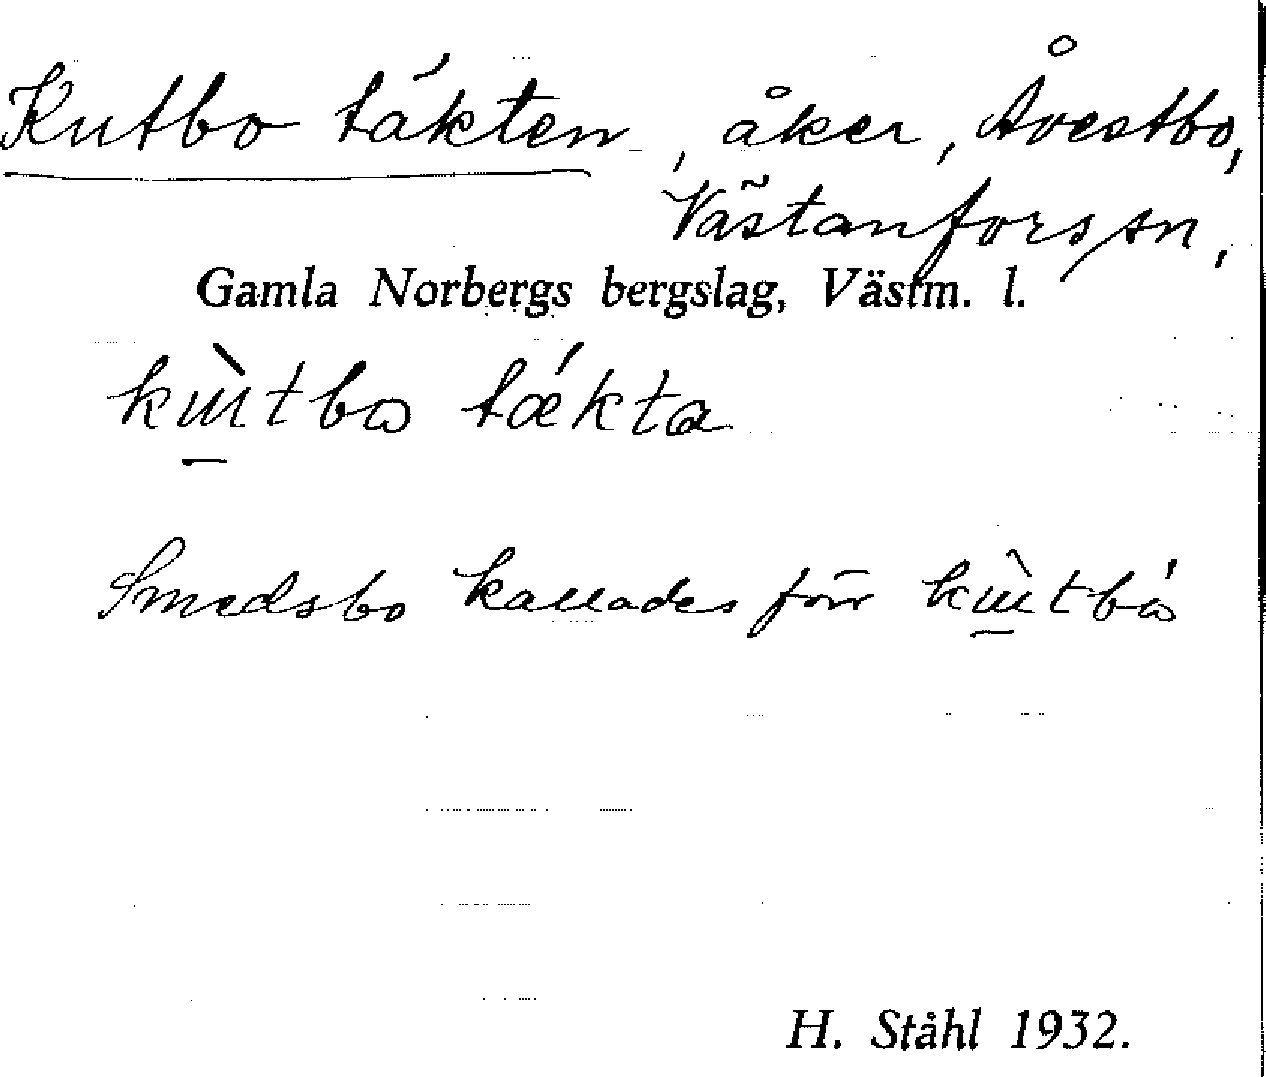 Kutbo täkten, åker, Åvestbo,
Västanfors sn,
Gamla Norbergs bergslag, Västm. l.
kɯ̱̀tbɷ tǽkta
Smedsbo kallades förr kɯ̱̀tbɷ́
H. Ståhl 1932.